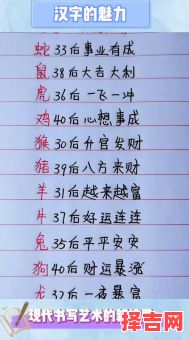 汉字的魅力
蛇33后事业有成
鼠38后大吉大利
虎36后一飞一冲
鸡40后心想事成
猴30后升官发财
猪39后八方来财
羊31后越来越富
牛37后好运连连
兔35后平平安安
狗40后财运暴涨
龙32后一夜暴富
现代书写艺术的
择吉网
zejiwang.com